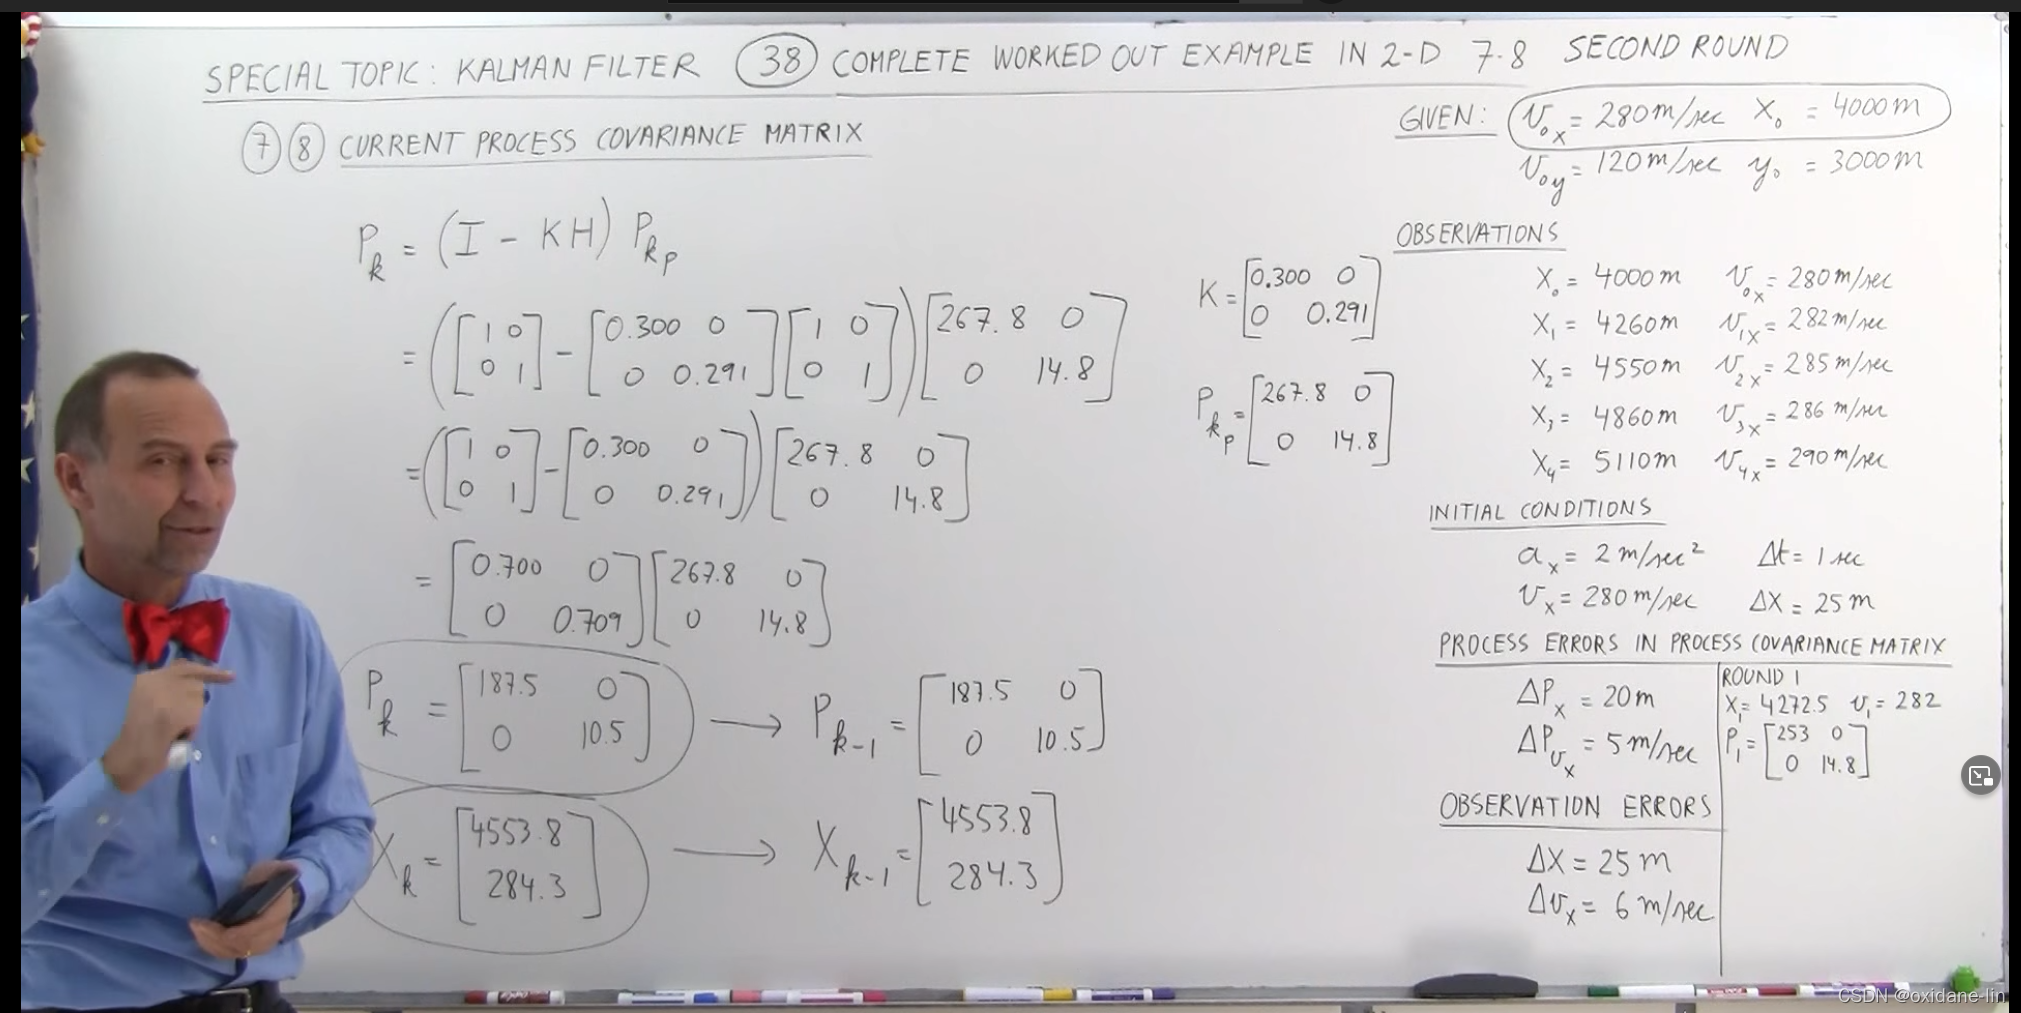 SPECIAL TOPIC: KALMAN FILTER (38) COMPLETE WORKED OUT EXAMPLE IN 2-D 7-8 SECOND ROUND
(7)(8) CURRENT PROCESS COVARIANCE MATRIX
P_k = (I - KH) P_kp
= ([1 0; 0 1] - [0.300 0; 0 0.291][1 0; 0 1])[267.8 0; 0 14.8]
= ([1 0; 0 1] - [0.300 0; 0 0.291])[267.8 0; 0 14.8]
= [0.700 0; 0 0.709][267.8 0; 0 14.8]
P_k = [187.5 0; 0 10.5] → P_k-1 = [187.5 0; 0 10.5]
X_k = [4553.8; 284.3] → X_k-1 = [4553.8; 284.3]
K = [0.300 0; 0 0.291]
P_kp = [267.8 0; 0 14.8]
GIVEN: v_0x = 280 m/sec X_0 = 4000 m
v_0y = 120 m/sec y_0 = 3000 m
OBSERVATIONS
X_0 = 4000 m v_0x = 280 m/sec
X_1 = 4260 m v_1x = 282 m/sec
X_2 = 4550 m v_2x = 285 m/sec
X_3 = 4860 m v_3x = 286 m/sec
X_4 = 5110 m v_4x = 290 m/sec
INITIAL CONDITIONS
a_x = 2 m/sec² Δt = 1 sec
v_x = 280 m/sec ΔX = 25 m
PROCESS ERRORS IN PROCESS COVARIANCE MATRIX
ΔP_x = 20 m
ΔP_vx = 5 m/sec
ROUND 1
X_1 = 4272.5 v_1 = 282
P_1 = [253 0; 0 14.8]
OBSERVATION ERRORS
ΔX = 25 m
Δv_x = 6 m/sec
CSDN @oxidane-lin